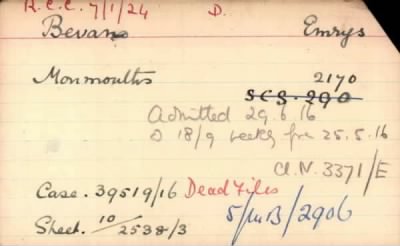 R.C.C. 7/1/24 D.
Bevan Emrys
Monmouths 2170
S.C.S. 290
Admitted 29.6.16
D 18/9 weekly fre 25.5.16
Cl.N. 3371/E
Case. 39519/16 Dead Files
Sheet. 10/2538/3 5/MB/2906